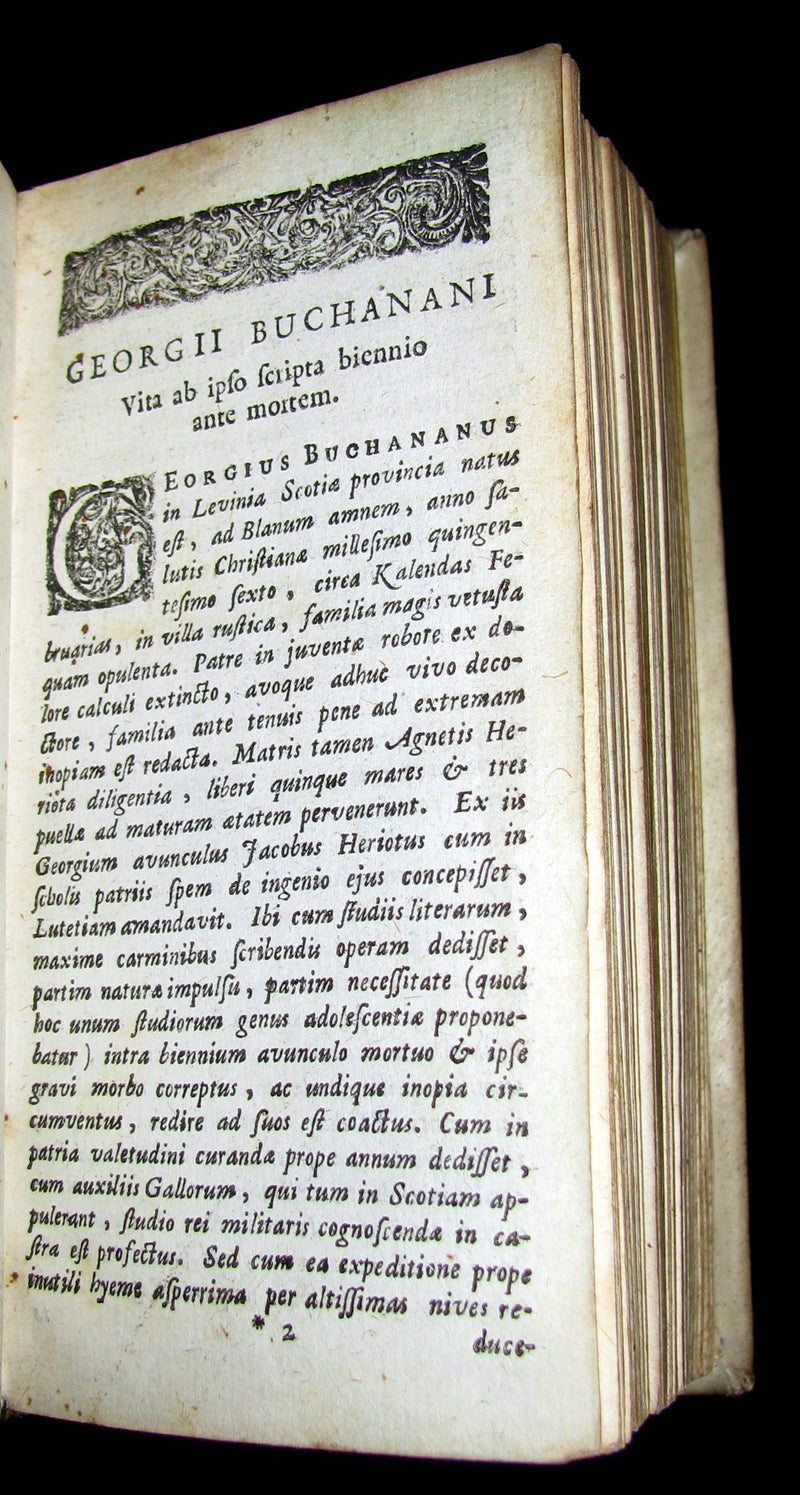 GEORGII BUCHANANI
Vita ab ipſo ſcripta biennio
ante mortem.
GEORGIUS BUCHANANUS
in Levinia Scotiæ provincia natus
eſt, ad Blanum amnem, anno ſa-
lutis Chriſtianæ milleſimo quingen-
teſimo ſexto, circa Kalendas Fe-
bruarias, in villa ruſtica, familia magis vetuſta
quàm opulenta. Patre in juventæ robore ex do-
lore calculi extincto, avoque adhuc vivo deco-
ctore, familia ante tenuis pene ad extremam
inopiam eſt redacta. Matris tamen Agnetis He-
riotæ diligentia, liberi quinque mares & tres
puellæ ad maturam ætatem pervenerunt. Ex iis
Georgium avunculus Jacobus Heriotus cum in
ſcholis patriis ſpem de ingenio ejus concepiſſet,
Lutetiam amandavit. Ibi cum ſtudiis literarum,
maxime carminibus ſcribendis operam dediſſet,
partim naturæ impulſu, partim neceſſitate (quod
hoc unum ſtudiorum genus adoleſcentiæ propone-
batur) intra biennium avunculo mortuo & ipſe
gravi morbo correptus, ac undique inopia cir-
cumventus, redire ad ſuos eſt coactus. Cum in
patria valetudini curandæ prope annum dediſſet,
cum auxiliis Gallorum, qui tum in Scotiam ap-
pulerant, ſtudio rei militaris cognoſcendæ in ca-
ſtra eſt profectus. Sed cum ea expeditione prope
inutili hyeme aſperrima per altiſſimas nives re-
* 2
duce-